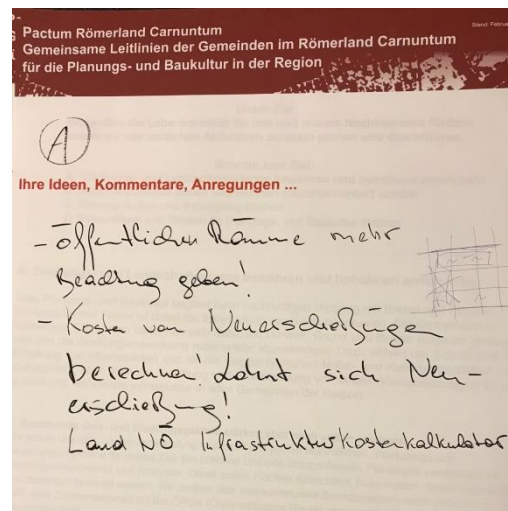 Pactum Römerland Carnuntum
Gemeinsame Leitlinien der Gemeinden im Römerland Carnuntum
für die Planungs- und Baukultur in der Region
Stand: Februar
A
Ihre Ideen, Kommentare, Anregungen ...
- öffentlichen Räume mehr
Beachtung geben!
- Kosten von Neuerschließungen
berechnen! Lohnt sich Neu-
erschließung!
Land NÖ Infrastrukturkostenkalkulator